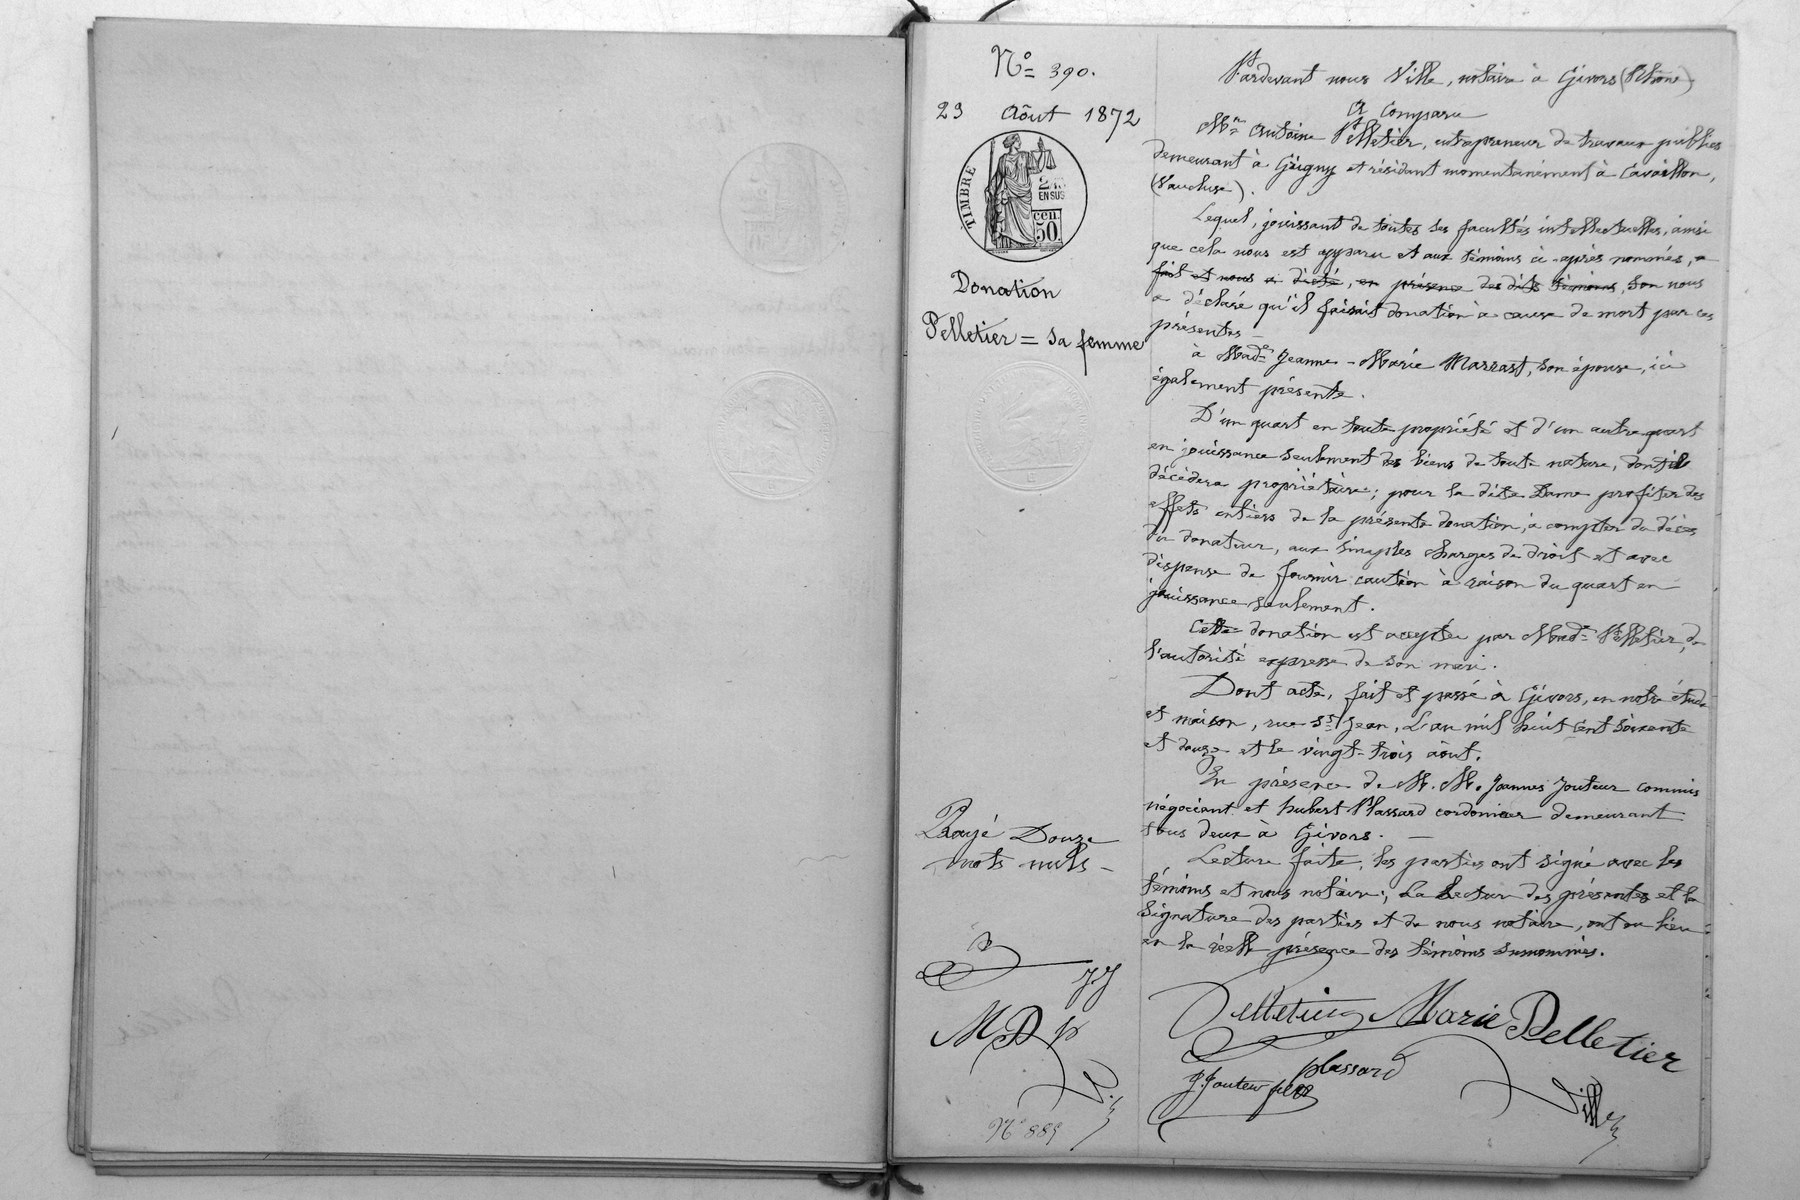 N° 390.
23 Août 1872
TIMBRE
2/10
EN SUS
50 cen.
Donation
Pelletier = sa femme
Pardevant nous Ville, notaire à Givors (Rhône)
A comparu
Mr Antoine Pelletier, entrepreneur de travaux publics
demeurant à Grigny et résidant momentanément à Cavaillon,
(Vaucluse).
Lequel, jouissant de toutes ses facultés intellectuelles, ainsi
que cela nous est apparu et aux témoins ci-après nommés, a
fait et nous a dicté, en présence des dits témoins, son nous
a déclaré qu'il faisait donation à cause de mort par ces
présentes
à Made Jeanne-Marie Marrast, son épouse, ici
également présente.
D'un quart en toute propriété et d'un autre quart
en jouissance seulement des biens de toute nature, dont il
décèdera propriétaire; pour la dite Dame profiter des
effets entiers de la présente donation, à compter du décès
du donateur, aux simples charges de droit et avec
dispense de fournir caution à raison du quart en
jouissance seulement.
Cette donation est acceptée par Made Pelletier, de
l'autorité expresse de son mari.
Dont acte, fait et passé à Givors, en notre étude
et maison, rue St Jean, L'an mil huit cent soixante
et douze et le vingt-trois août.
En présence de M. M. Joannes Jouteur commis
négociant et hubert Plassard cordonnier demeurant
tous deux à Givors. —
Lecture faite, les parties ont signé avec les
témoins et nous notaire; La Lecture des présentes et la
signature des parties et de nous notaire, ont eu lieu
en la réelle présence des témoins susnommés.
Rayé Douze
mots nuls —
JJ
M P
Pelletier Marie Pelletier
plassard
J. Jouteur fils
Ville
N° 889